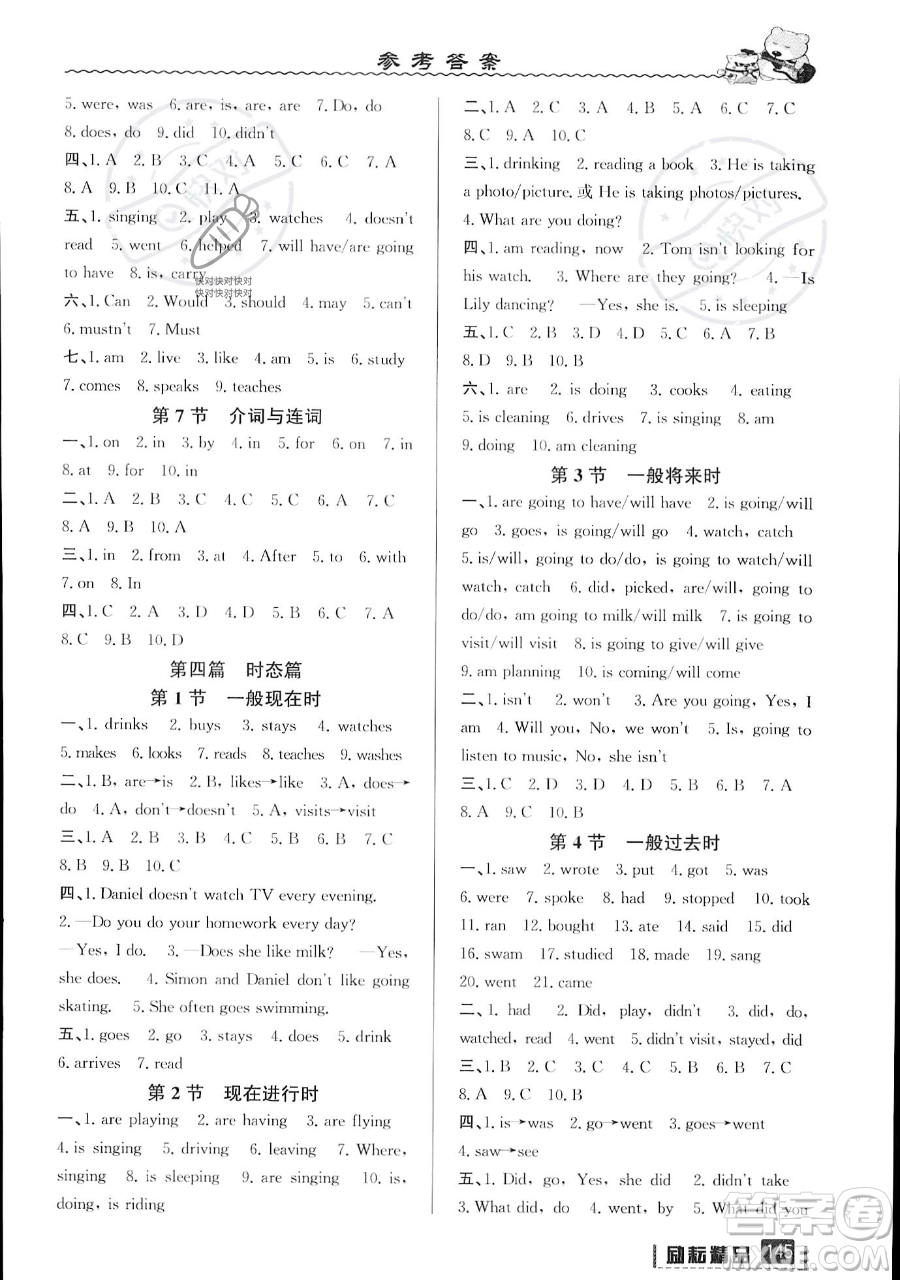 参考答案
5. were, was 6. are, is, are, are 7. Do, do
8. does, do 9. did 10. didn't
四、1. A 2. B 3. C 4. C 5. B 6. C 7. A
8. A 9. B 10. C 11. A
五、1. singing 2. play 3. watches 4. doesn't
read 5. went 6. helped 7. will have/are going
to have 8. is, carry
六、1. Can 2. Would 3. should 4. may 5. can't
6. mustn't 7. Must
七、1. am 2. live 3. like 4. am 5. is 6. study
7. comes 8. speaks 9. teaches
第7节 介词与连词
一、1. on 2. in 3. by 4. in 5. on 6. at 7. in
8. at 9. for 10. in
二、1. A 2. B 3. C 4. C 5. B 6. C 7. C
8. A 9. B 10. A
三、1. in 2. from 3. at 4. After 5. to 6. as
7. on 8. In
四、1. C 2. A 3. D 4. D 5. A 6. C 7. A
8. C 9. B 10. D
第四篇 时态篇
第1节 一般现在时
一、1. drinks 2. buys 3. stays 4. watches
5. makes 6. looks 7. reads 8. teaches 9. washes
二、1. B, are→is 2. B, likes→like 3. A, does→
do 4. A, don't→doesn't 5. A, visits→visit
三、1. C 2. A 3. B 4. B 5. B 6. B 7. C
8. B 9. B 10. C
四、1. Daniel doesn't watch TV every evening.
2. —Do you do your homework every day?
—Yes, I do. 3. —Does she like milk? —Yes,
she does. 4. Simon and Daniel don't like going
skating. 5. She often goes swimming.
五、1. goes 2. go 3. stays 4. does 5. drink
6. arrives 7. read
第2节 现在进行时
一、1. are playing 2. are having 3. are flying
4. is singing 5. driving 6. leaving 7. Where,
singing 8. is sleeping 9. are singing 10. is,
doing, is riding
二、1. A 2. C 3. A 4. B 5. A 6. C 7. C
8. C 9. A 10. C
三、1. drinking 2. reading a book 3. He is taking
a photo/picture. 或 He is taking photos/pictures.
4. What are you doing?
四、1. am reading, now 2. Tom isn't looking for
his watch. 3. Where are they going? 4. —Is
Lily dancing? —Yes, she is. 5. is sleeping
五、1. C 2. B 3. C 4. D 5. A 6. A 7. B
8. D 9. B 10. A
六、1. are 2. is doing 3. cooks 4. eating
5. is cleaning 6. drives 7. is singing 8. am
9. doing 10. am cleaning
第3节 一般将来时
一、1. are going to have/will have 2. is going/will
go 3. goes, is going to/will go 4. watch, catch
5. is/will, going to do/do, is going to watch/will
watch, catch 6. did, picked, are/will, going to
do/do, am going to milk/will milk 7. is going to
visit/will visit 8. is going to give/will give
9. am planning 10. is coming/will come
二、1. isn't 2. won't 3. Are you going, Yes, I
am 4. Will you, No, we won't 5. Is, going to
listen to music, No, she isn't
三、1. C 2. C 3. C 4. B 5. B 6. B 7. A
8. A 9. C 10. B
第4节 一般过去时
一、1. saw 2. wrote 3. put 4. got 5. was
6. were 7. spoke 8. had 9. stopped 10. took
11. ran 12. bought 13. ate 14. said 15. read
16. swam 17. studied 18. watched 19. sang
20. went 21. came
二、1. had 2. Did, play, didn't 3. did, do,
watched, read 4. went 5. didn't visit, stayed, did
三、1. B 2. C 3. C 4. C 5. B 6. B 7. C
8. A 9. B 10. C
四、1. is→was 2. go→went 3. goes→went
4. saw→see
五、1. Did, go, Yes, did 2. didn't take
3. What did, do 4. went, by 5. What did you
快对快对快对快对
快对快对快对快对
快对
答案圈
励耘精品
145